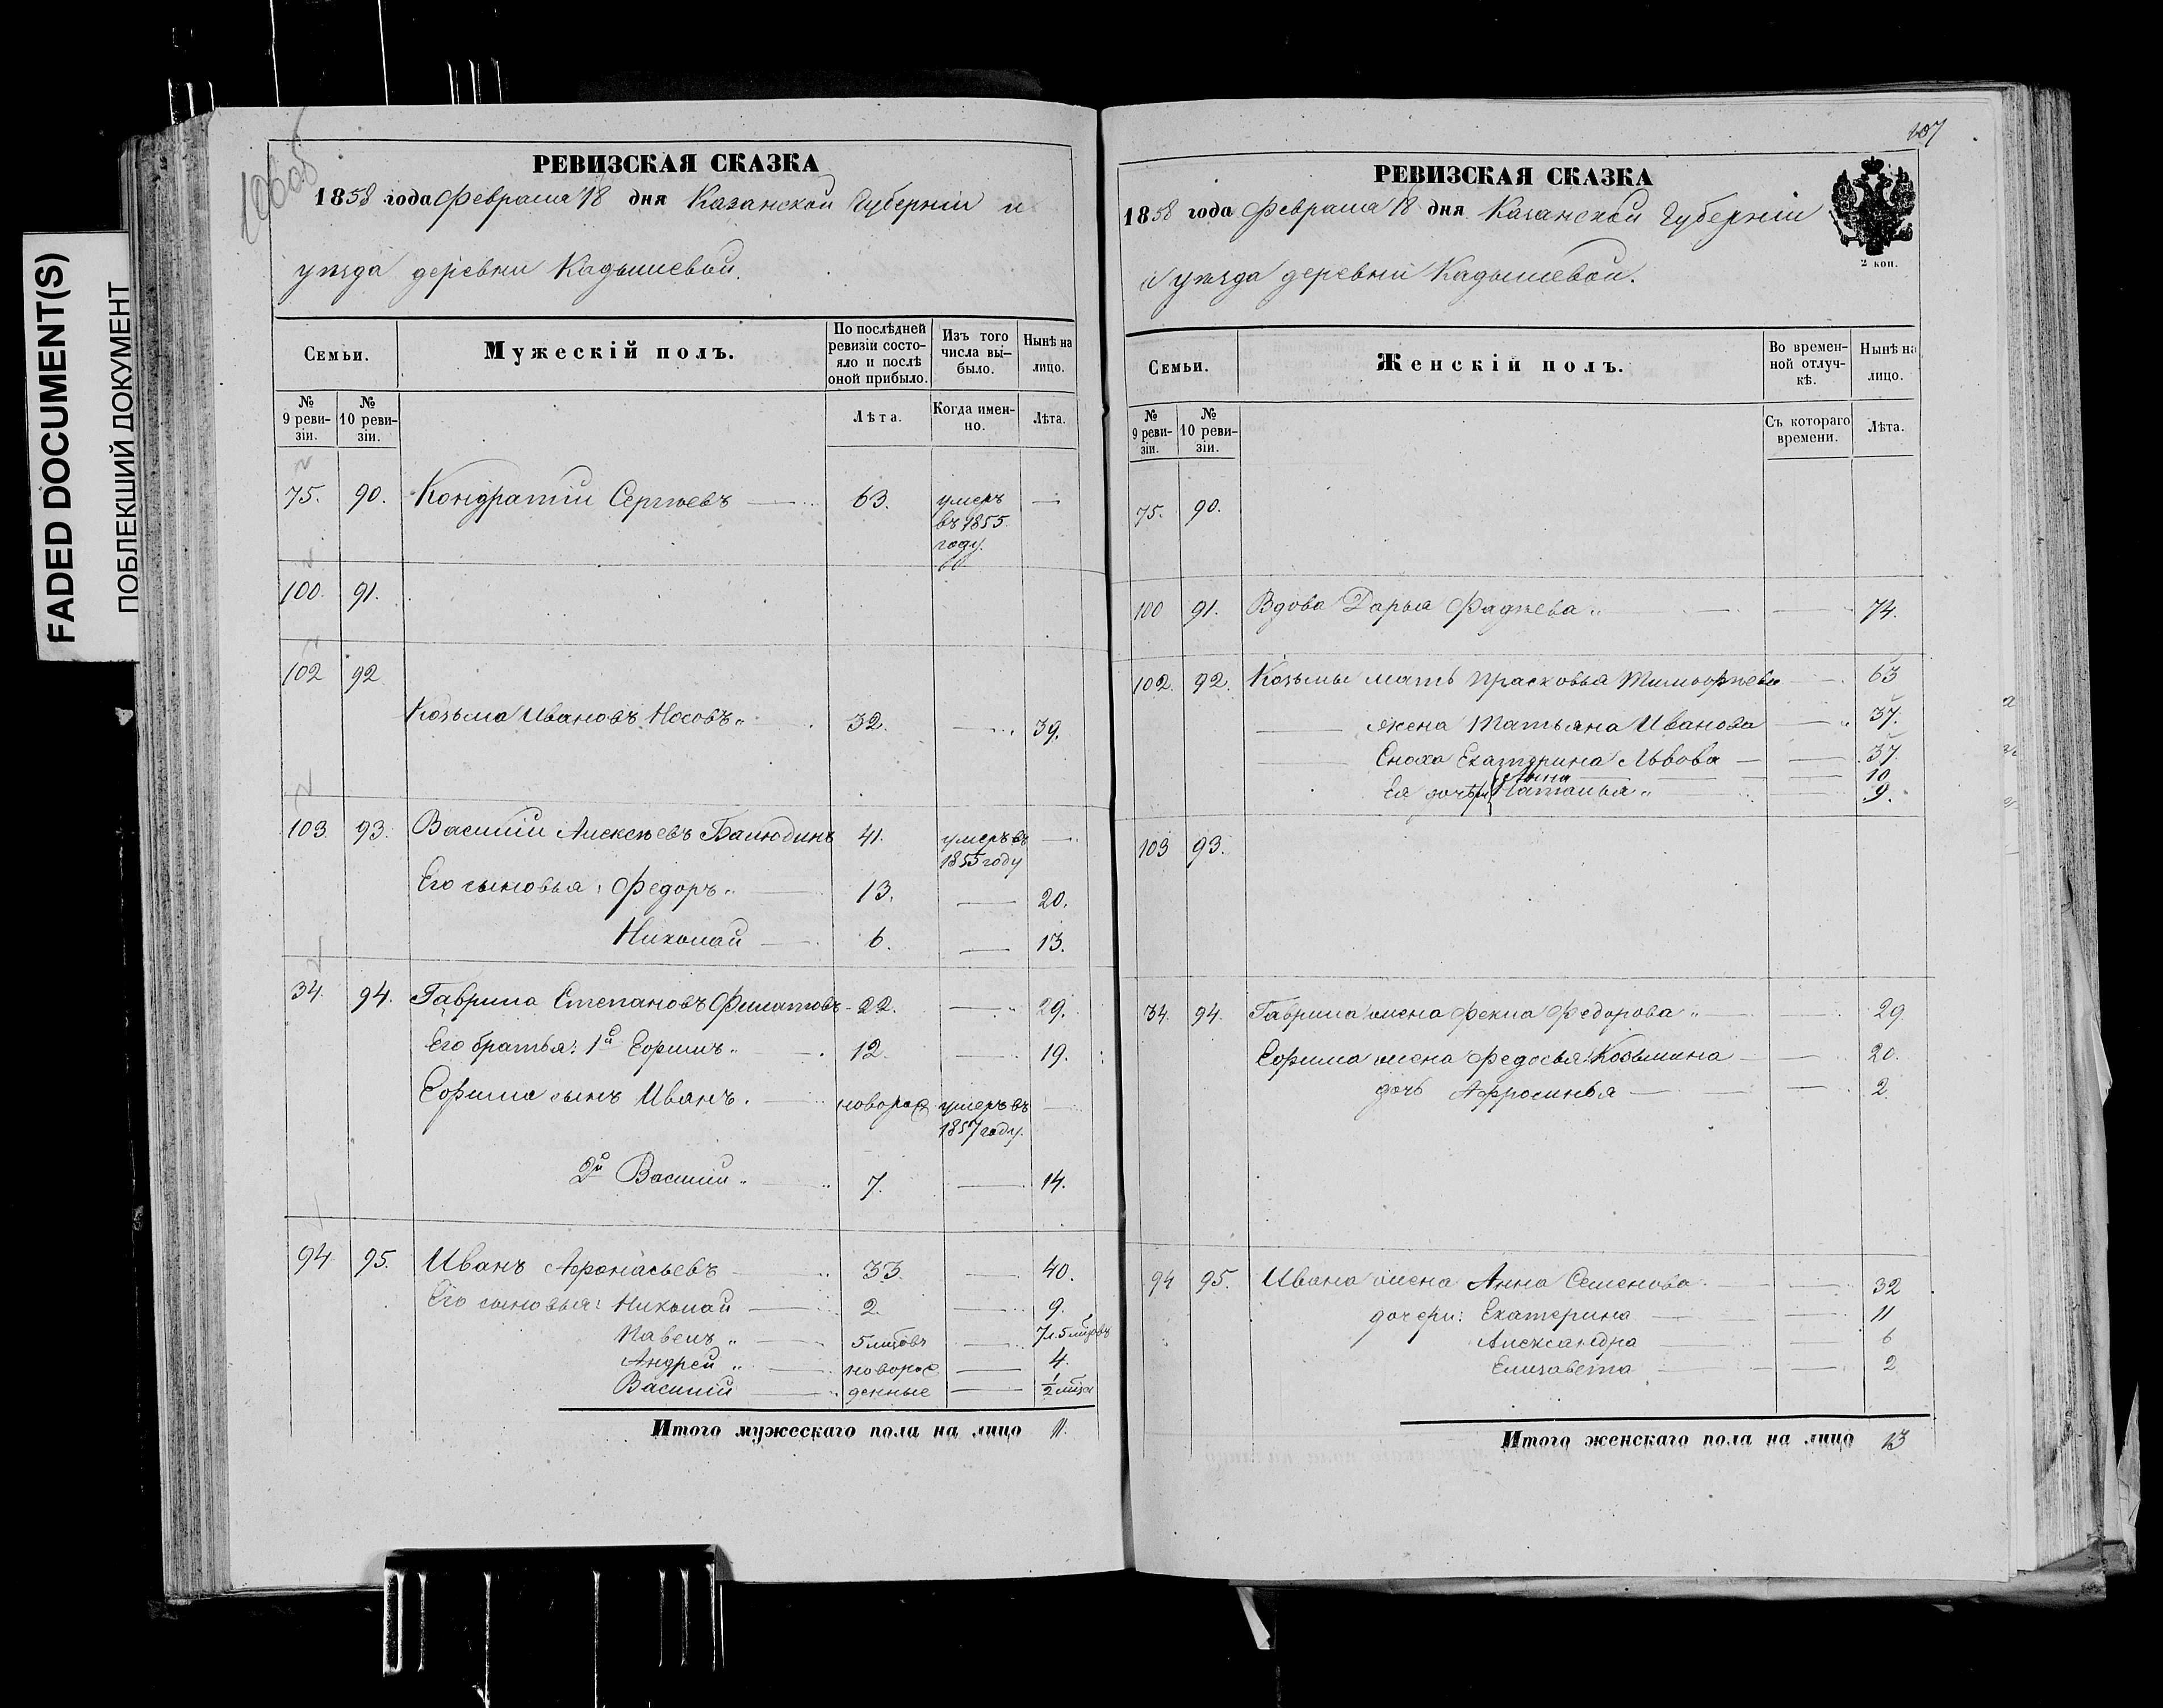 FADED DOCUMENT(S)
ПОБЛЕКШИЙ ДОКУМЕНТ
РЕВИЗСКАЯ СКАЗКА
1858 года Февраля 18 дня Казанской Губерніи и
уѣзда деревни Кадышевой.
Семьи.
Мужескій полъ.
По послѣдней ревизіи состо-яло и послѣ оной прибыло.
Изъ того числа вы-было.
Нынѣ на лицо.
№ 9 реви-зіи.
№ 10 реви-зіи.
Лѣта.
Когда имен-но.
Лѣта.
75. 90. Кондратій Сергѣевъ — 63. умеръ въ 1855 году. —
100. 91.
102 92
Козьма Ивановъ Носовъ 32. — 39.
103. 93. Василій Алексѣевъ Балюдинъ 41. умеръ въ 1855 году —
Его сыновья: Федоръ — 13. — 20.
Николай — 6. — 13.
34. 94. Гаврила Степановъ Филатовъ - 22. — 29.
Его братья: 1й Ефимъ — 12. — 19.
Ефима сынъ Иванъ. — новорож умеръ въ 1857 году. —
2й Василій — 7. — 14.
94. 95. Иванъ Афонасьевъ — 33. — 40.
Его сыновья: Николай — 2. — 9.
Павелъ — 5 мѣсцовъ — 7 л. 5 мѣсцовъ
Андрей — новорож — 4.
Василій — денные — 1/2 мѣсца
Итого мужескаго пола на лицо 11.
107
РЕВИЗСКАЯ СКАЗКА
2 коп.
1858 года Февраля 18 дня Казанской Губерніи
и уѣзда деревни Кадышевой.
Семьи.
Женскій полъ.
Во времен-ной отлуч-кѣ.
Нынѣ на лицо.
№ 9 реви-зіи.
№ 10 реви-зіи.
Съ котораго времени.
Лѣта.
75. 90.
100 91. Вдова Дарья Фадѣева — — 74.
102. 92. Козьмы мать Прасковья Тимофѣева — 63
— жена Татьяна Иванова — 37.
— Сноха Екатерина Львова — — 37.
Анна — — 10
Ея дочери Наталья — — 9.
103 93.
34. 94. Гаврила жена Фекла Федорова — — 29
Ефима жена Федосья Козьмина — — 20.
дочь Афросинья — — 2.
94 95. Ивана жена Анна Семенова — — 32
дочери: Екатерина — — 11
Александра — — 6
Елизавета — — 2
Итого женскаго пола на лицо 13